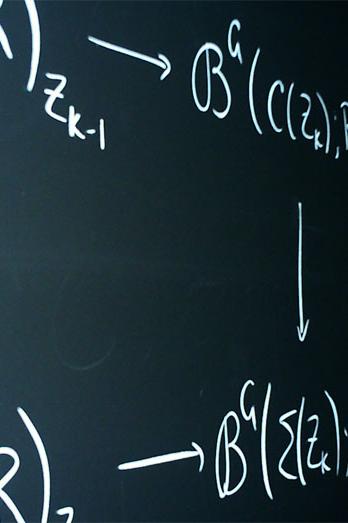 )_{Z_{k-1}} → B^G(C(Z_k);
↓
R)_Z → B^G(Σ(Z_k);